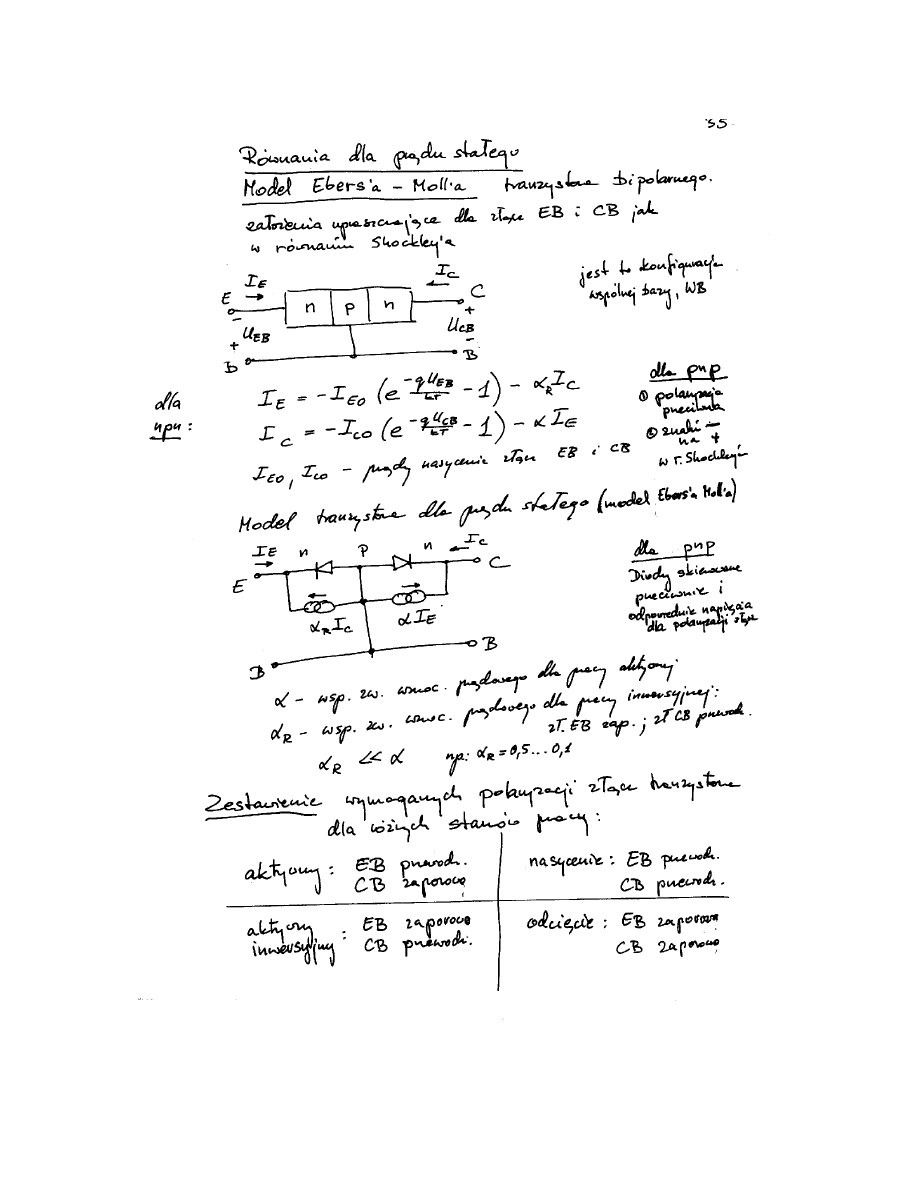 55
Równania dla prądu stałego
Model Ebers'a – Moll'a tranzystora bipolarnego.
założenia upraszczające dla złącz EB i CB jak
w równaniu Shockley'a
jest to konfiguracja
wspólnej bazy, WB
I_E I_C
E n p n C
− +
U_EB U_CB
+ −
B B
dla npn:
I_E = -I_E0 (e^(-qU_EB/kT) - 1) - α_R I_C
I_C = -I_C0 (e^(-qU_CB/kT) - 1) - α I_E
I_E0, I_C0 – prądy nasycenia złącz EB i CB
dla pnp
① polaryzacja
przeciwna
② znaki −
na +
w r. Shockley'a
Model tranzystora dla prądu stałego (model Ebers'a Moll'a)
I_E n p n I_C
E C
α_R I_C α I_E
B B
dla pnp
Diody skierowane
przeciwnie i
odpowiednie napięcia
dla polaryzacji złącz
α – wsp. zw. wzmoc. prądowego dla pracy aktywnej
α_R – wsp. zw. wzmoc. prądowego dla pracy inwersyjnej:
zł. EB zap.; zł CB przewodz.
α_R << α np: α_R = 0,5...0,1
Zestawienie wymaganych polaryzacji złącz tranzystora
dla różnych stanów pracy:
aktywny: EB przewodz.
CB zaporowo
nasycenie: EB przewodz.
CB przewodz.
aktywny
inwersyjny: EB zaporowo
CB przewodz.
odcięcie: EB zaporowo
CB zaporowo